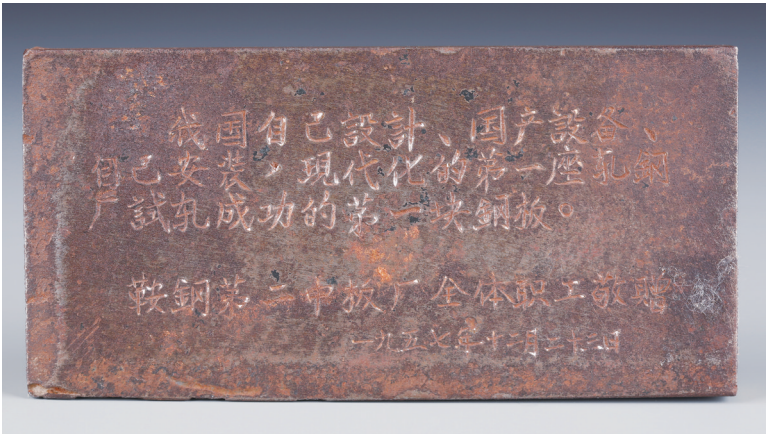 我国自己設計、国产設备、
自己安装、現代化的第一座轧鋼
厂試轧成功的第一块鋼板。
鞍鋼第二中板厂全体职工敬赠
一九五七年十二月二十二日